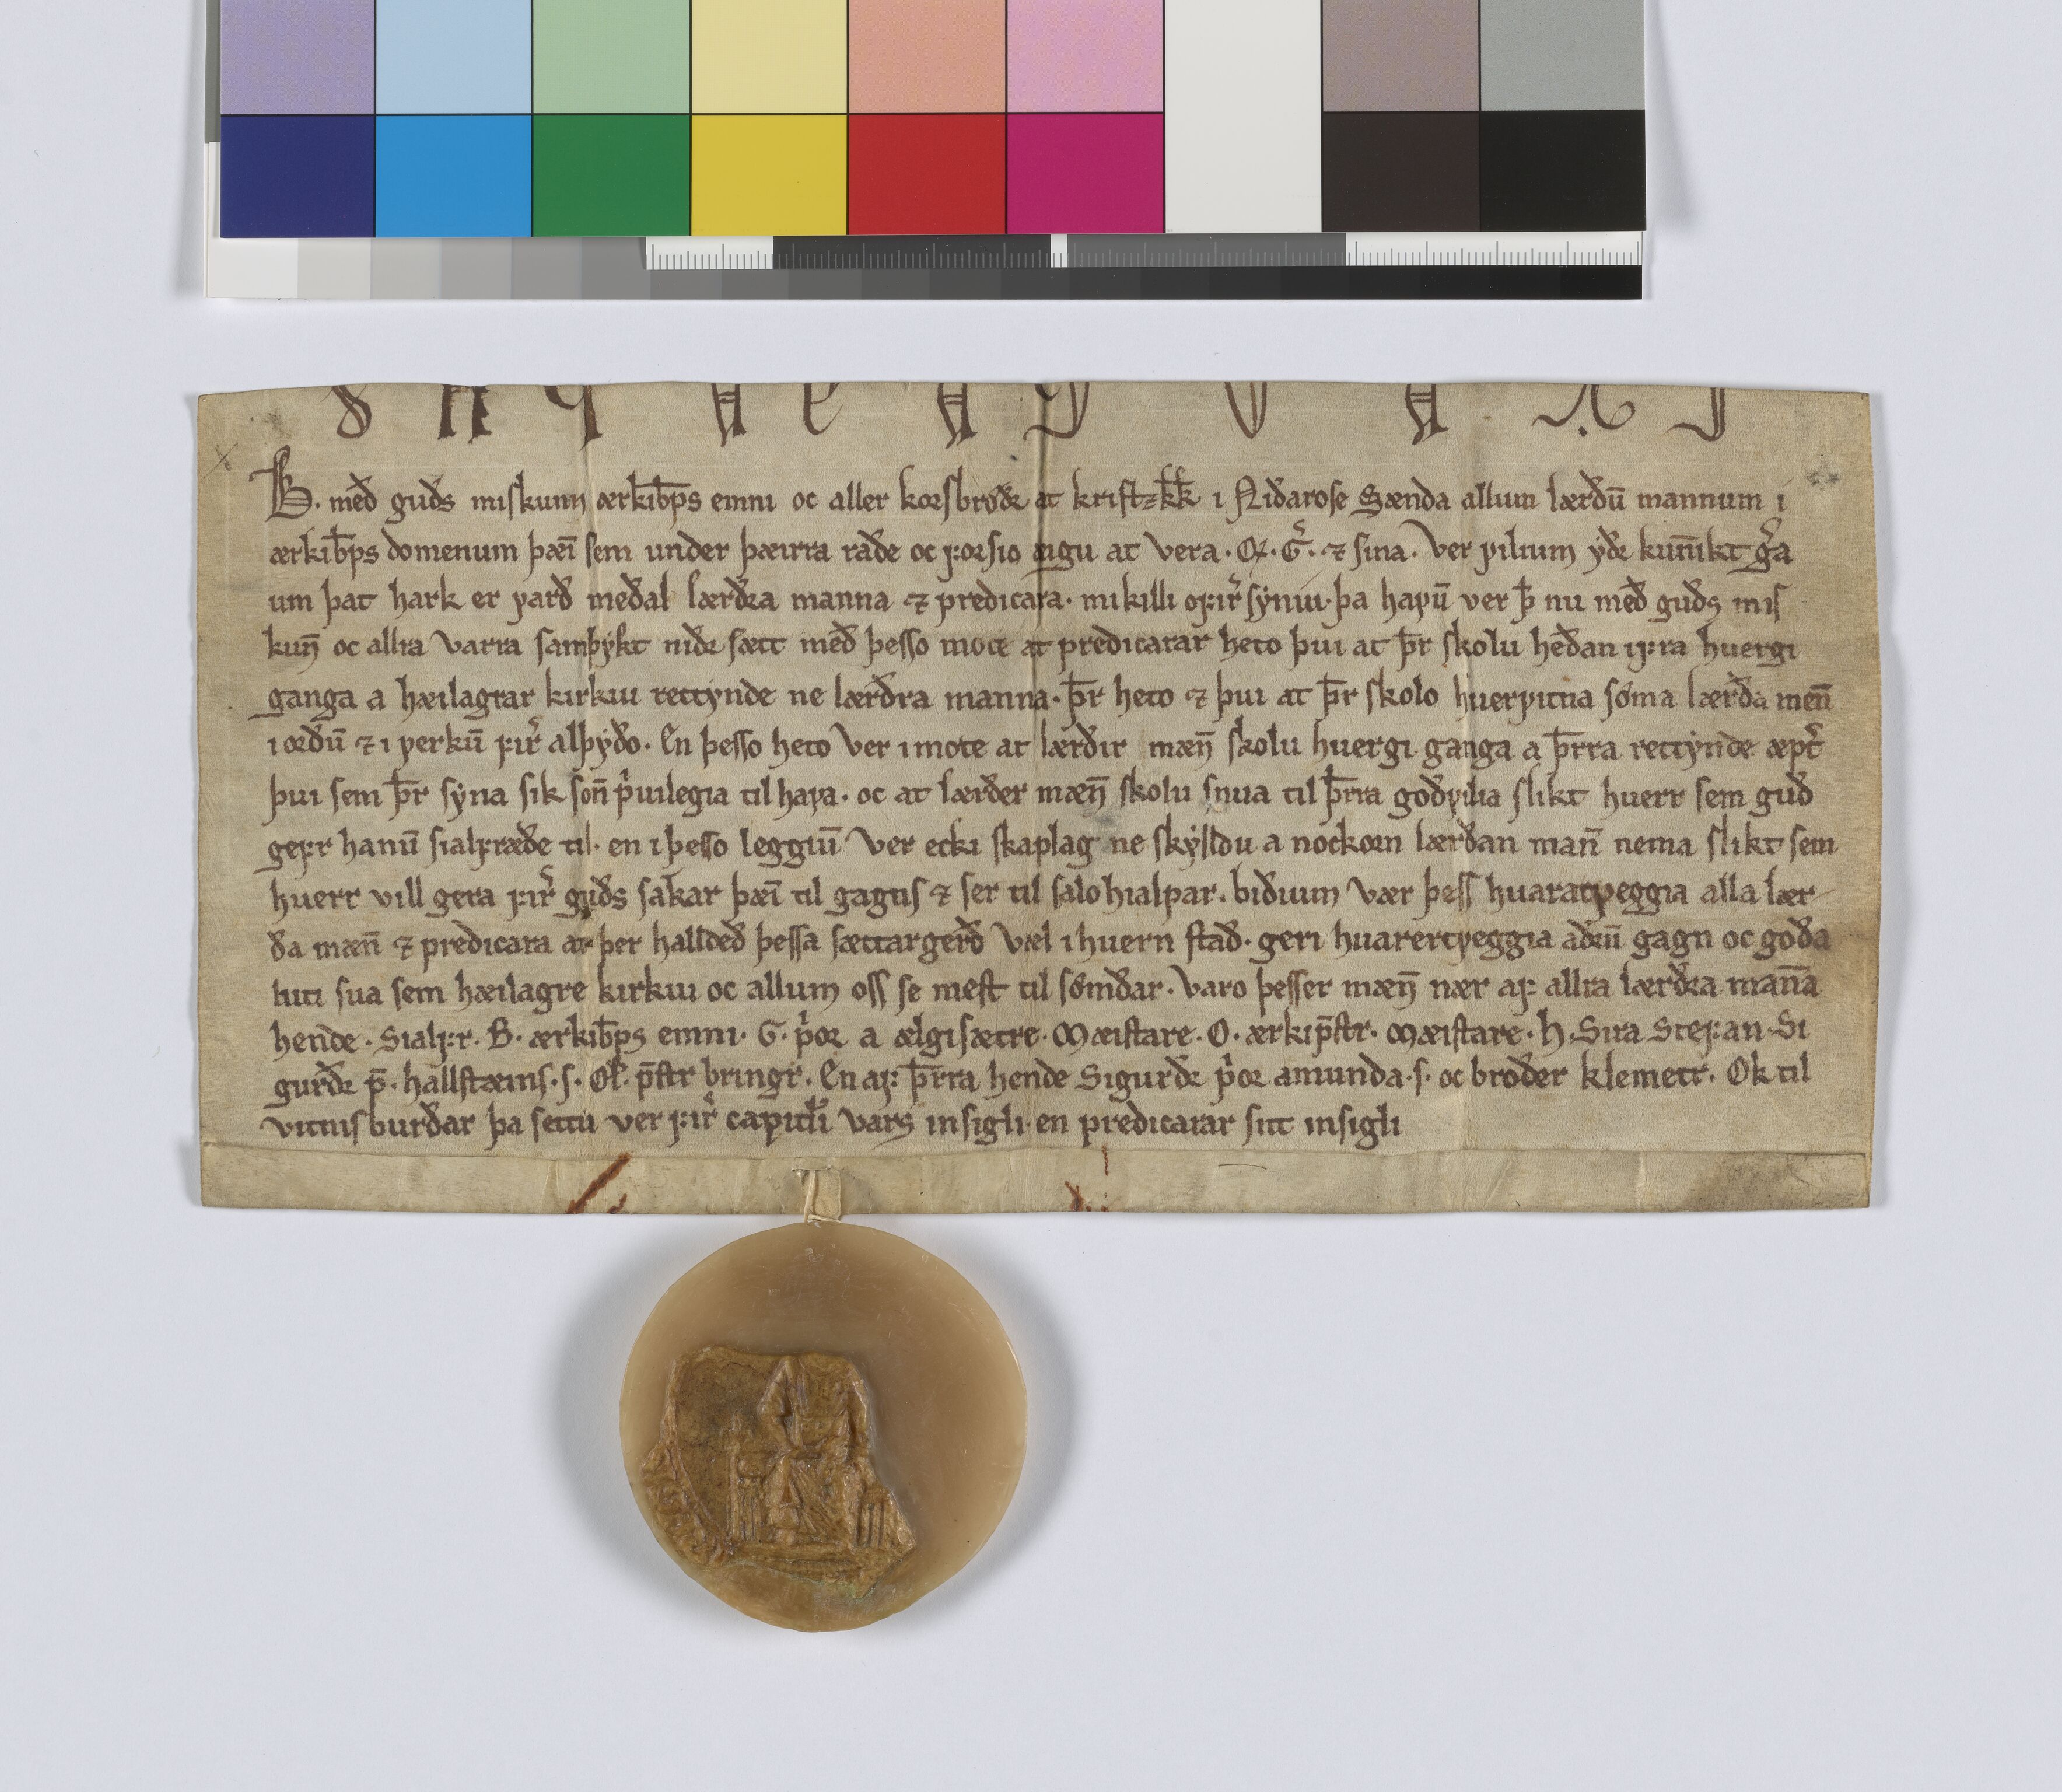 B. með guðs miskunn ærkibp̄s emni oc aller korsbrøðr at kristz kk̄ i Niðarose Sænda allum lærðū mannum i
ærkib̄ps domenum þæī sem under þæirra raðe oc forsio æigu at vera. Q. G̃. ⁊ sina. Ver vilium yðr kun̄ikt gͣa
um þat hark er varð meðal lærðra manna ⁊ predicara. mikilli ofir̃syniu. þa hafū ver þ̄ nu með guðs mis
kun̄ oc allra varra samþykt niðr sætt með þesso mote at predicarar heto þui at þr̄ skolu heðan ifra huergi
ganga a hæilagrar kirkiu rettynde ne lærðra manna. þr̄ heto ⁊ þui at þr̄ skolo huervitna søma lærða men̄
i orðū ⁊ i verkū fir̃ alþyðo. En þesso heto Ver imote at lærðir mæn̄ skolu huergi ganga a þr̄ra rettynde æpt̃
þui sem þr̄ syna sik son̄ p̃uilegia til hafa. oc at lærðer mæn̄ skolu snua til þr̄ra goðvilia slikt huerr sem guð
gefr hanū sialfræðe til. en i þesso leggiū Ver ecki skaplag ne skylldu a nockorn lærðan man̄ nema slikt sem
huerr vill gera fir̃ guðs sakar þæī til gagns ⁊ ser til salo hialpar. biðium Vær þess huaratveggia alla lær
ða mæn̄ ⁊ predicara at þer halldeð þessa sættargerð Væl i huern stað. geri huarertveggia aðrū gagn oc goða
luti sua sem hæilagre kirkiu oc allum oss se mest til sømðar. Varo þesser mæn̄ nær af allra lærðra man̄a
hende. Sialfr. B. ærkib̄ps emni. G. p̃or a ælgisætre. Mæistare. O. ærkip̄str. Mæistare. H. Sira Stefan. Si
gurðr p̄. hallstæins. s. Ol̄. p̄str bringr̃. En af þr̄ra hende Sigurðr p̃or amunda. s. oc broðer klemetr. Ok til
vitnisburðar þa settu ver fir̃ capitłi Vars insigli en predicarar sitt insigli